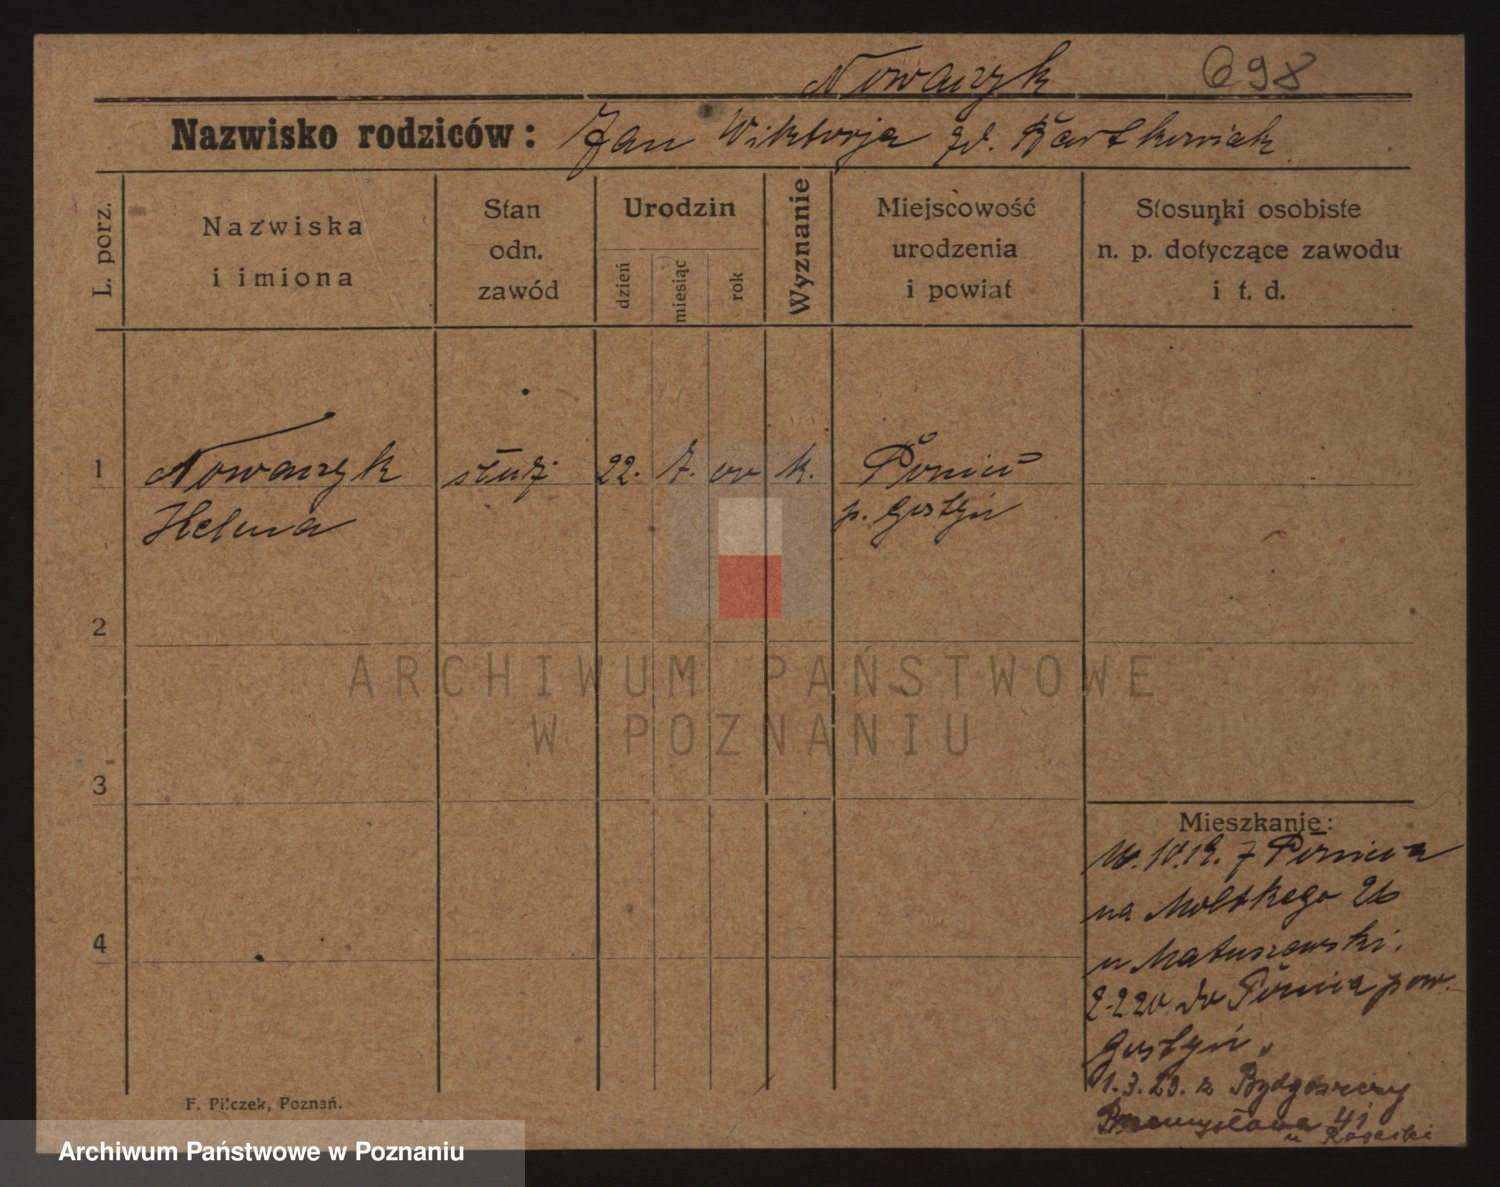 Nowaczyk 698
Nazwisko rodziców: Jan Wiktorja zd. Bartkowiak
L. porz.
Nazwiska
i imiona
Stan
odn.
zawód
Urodzin
dzień
miesiąc
rok
Wyznanie
Miejscowość
urodzenia
i powiat
Stosunki osobiste
n. p. dotyczące zawodu
i t. d.
1 Nowaczyk służ. 22. 7. k. Poniec
Helena p. Gostyń
2
ARCHIWUM PAŃSTWOWE
W POZNANIU
3
Mieszkanie:
10.19. z Ponieca
na Moltkego 26
u Matuszewski.
4
2-2 20 do Ponieca pow.
Gostyń.
1.3.23. z Bydgoszczy
Przemysłowa 41
u
F. Pilczek, Poznań.
Archiwum Państwowe w Poznaniu